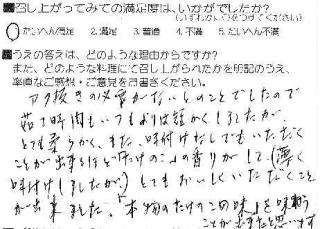 召し上がってみての満足度は、いかがでしたか?
(いずれかに○をつけてください)
1.たいへん満足 2.満足 3.普通 4.不満 5.たいへん不満
うえの答えは、どのような理由からですか?
また、どのような料理にて召し上がられたかを明記のうえ、
率直なご感想・ご意見をお書きください。
アク抜きの必要がないとのことでしたので
茹で時間もいつもよりは短かくしましたが、
とても柔らかく、また、味付けなしでもいただく
ことが出来るほど「竹の子」の香りがして、(薄く
味付けしましたが、)とてもおいしくいただくこと
が出来ました。「本物のたけのこの味」を味わう
ことが出来たと思います